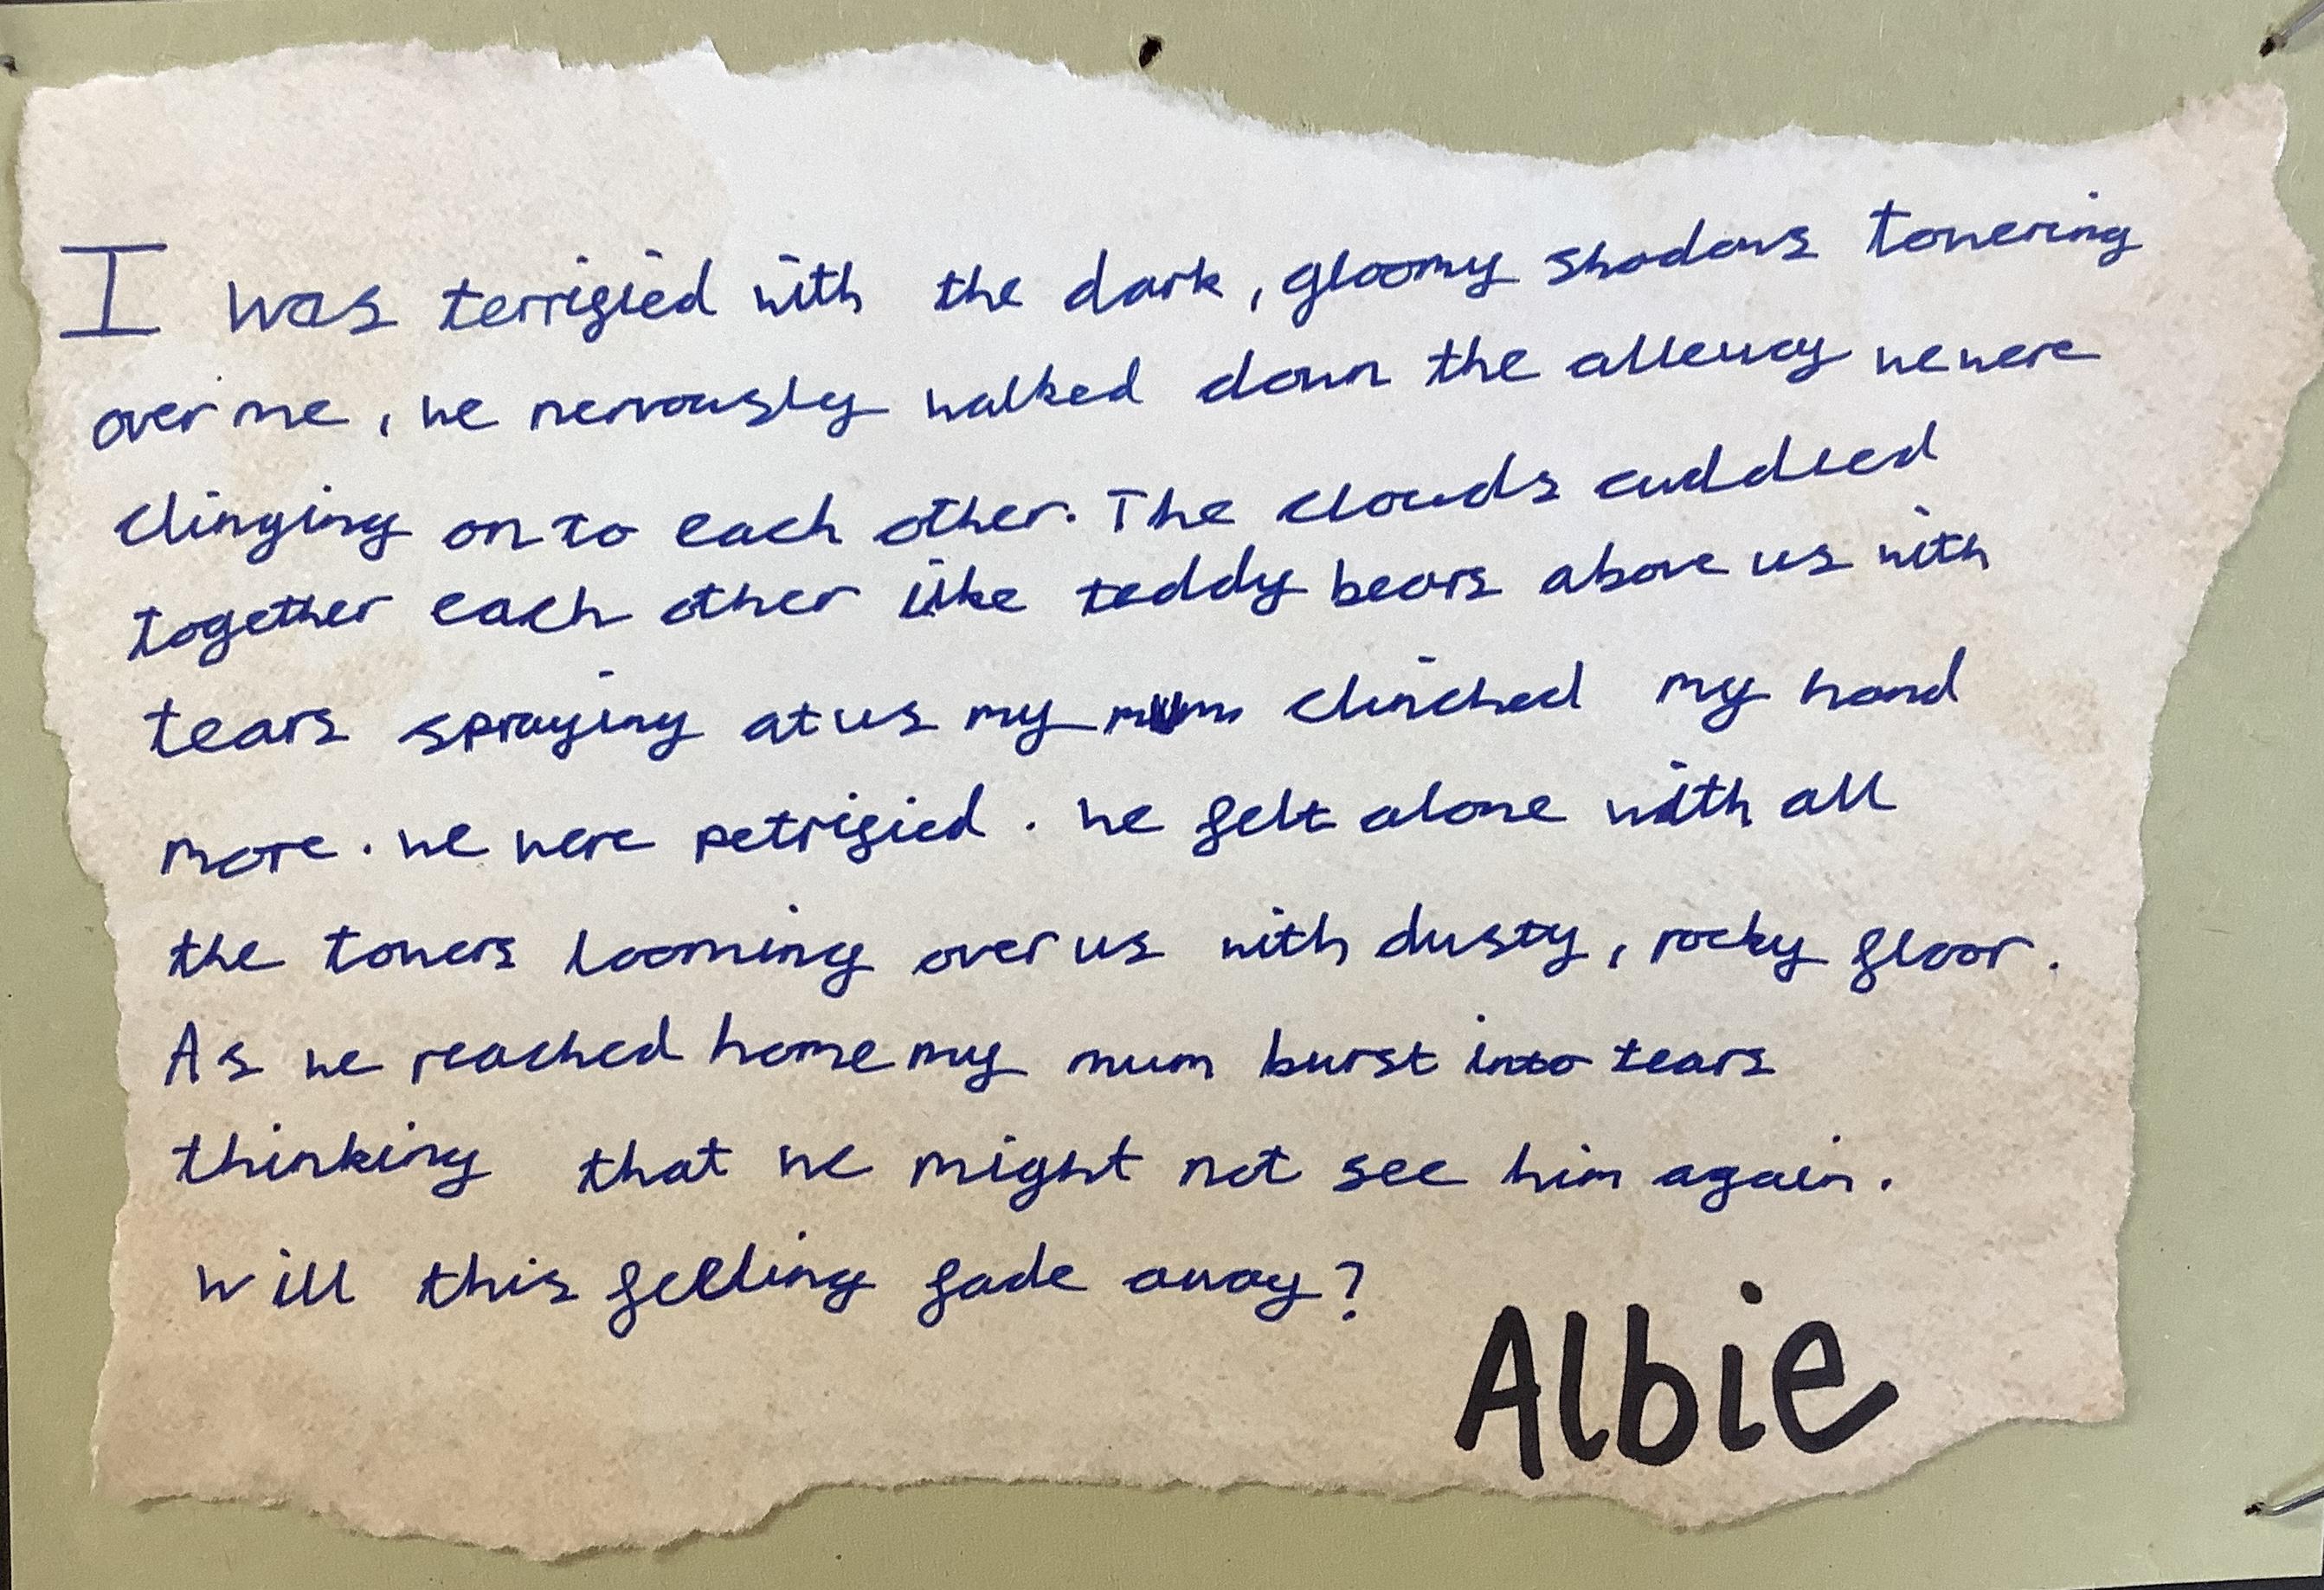 I was terrified with the dark, gloomy shadows towering
over me, we nervously walked down the alleway we were
clinging on to each other. The clouds cuddled
together each other like teddy bears above us with
tears spraying at us my mum clinched my hand
more. we were petrified. we felt alone with all
the towers looming over us with dusty, rocky floor.
As we reached home my mum burst into tears
thinking that we might not see him again.
Will this felling fade away?
Albie